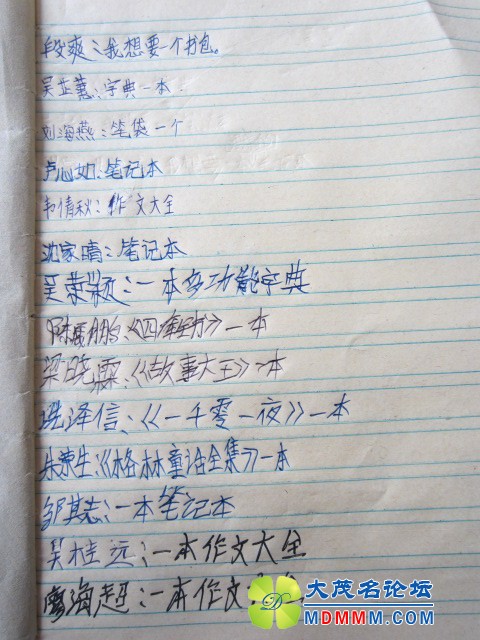 段爽:我想要一个书包。
吴芷慧:字典一本.
刘海燕:笔袋一个
卢心如:笔记本
韦倩秋:作文大全
沈家晴:笔记本
吴荣颖:一本多功能字典
《四库全书》一本
梁晓霖:《故事大王》一本
冼泽信、《一千零一夜》一本
朱荣生《格林童话全集》一本
邹其志:一本笔记本
吴桂远:一本作文大全
廖海超:一本作文
大茂名论坛
MDMMM.COM